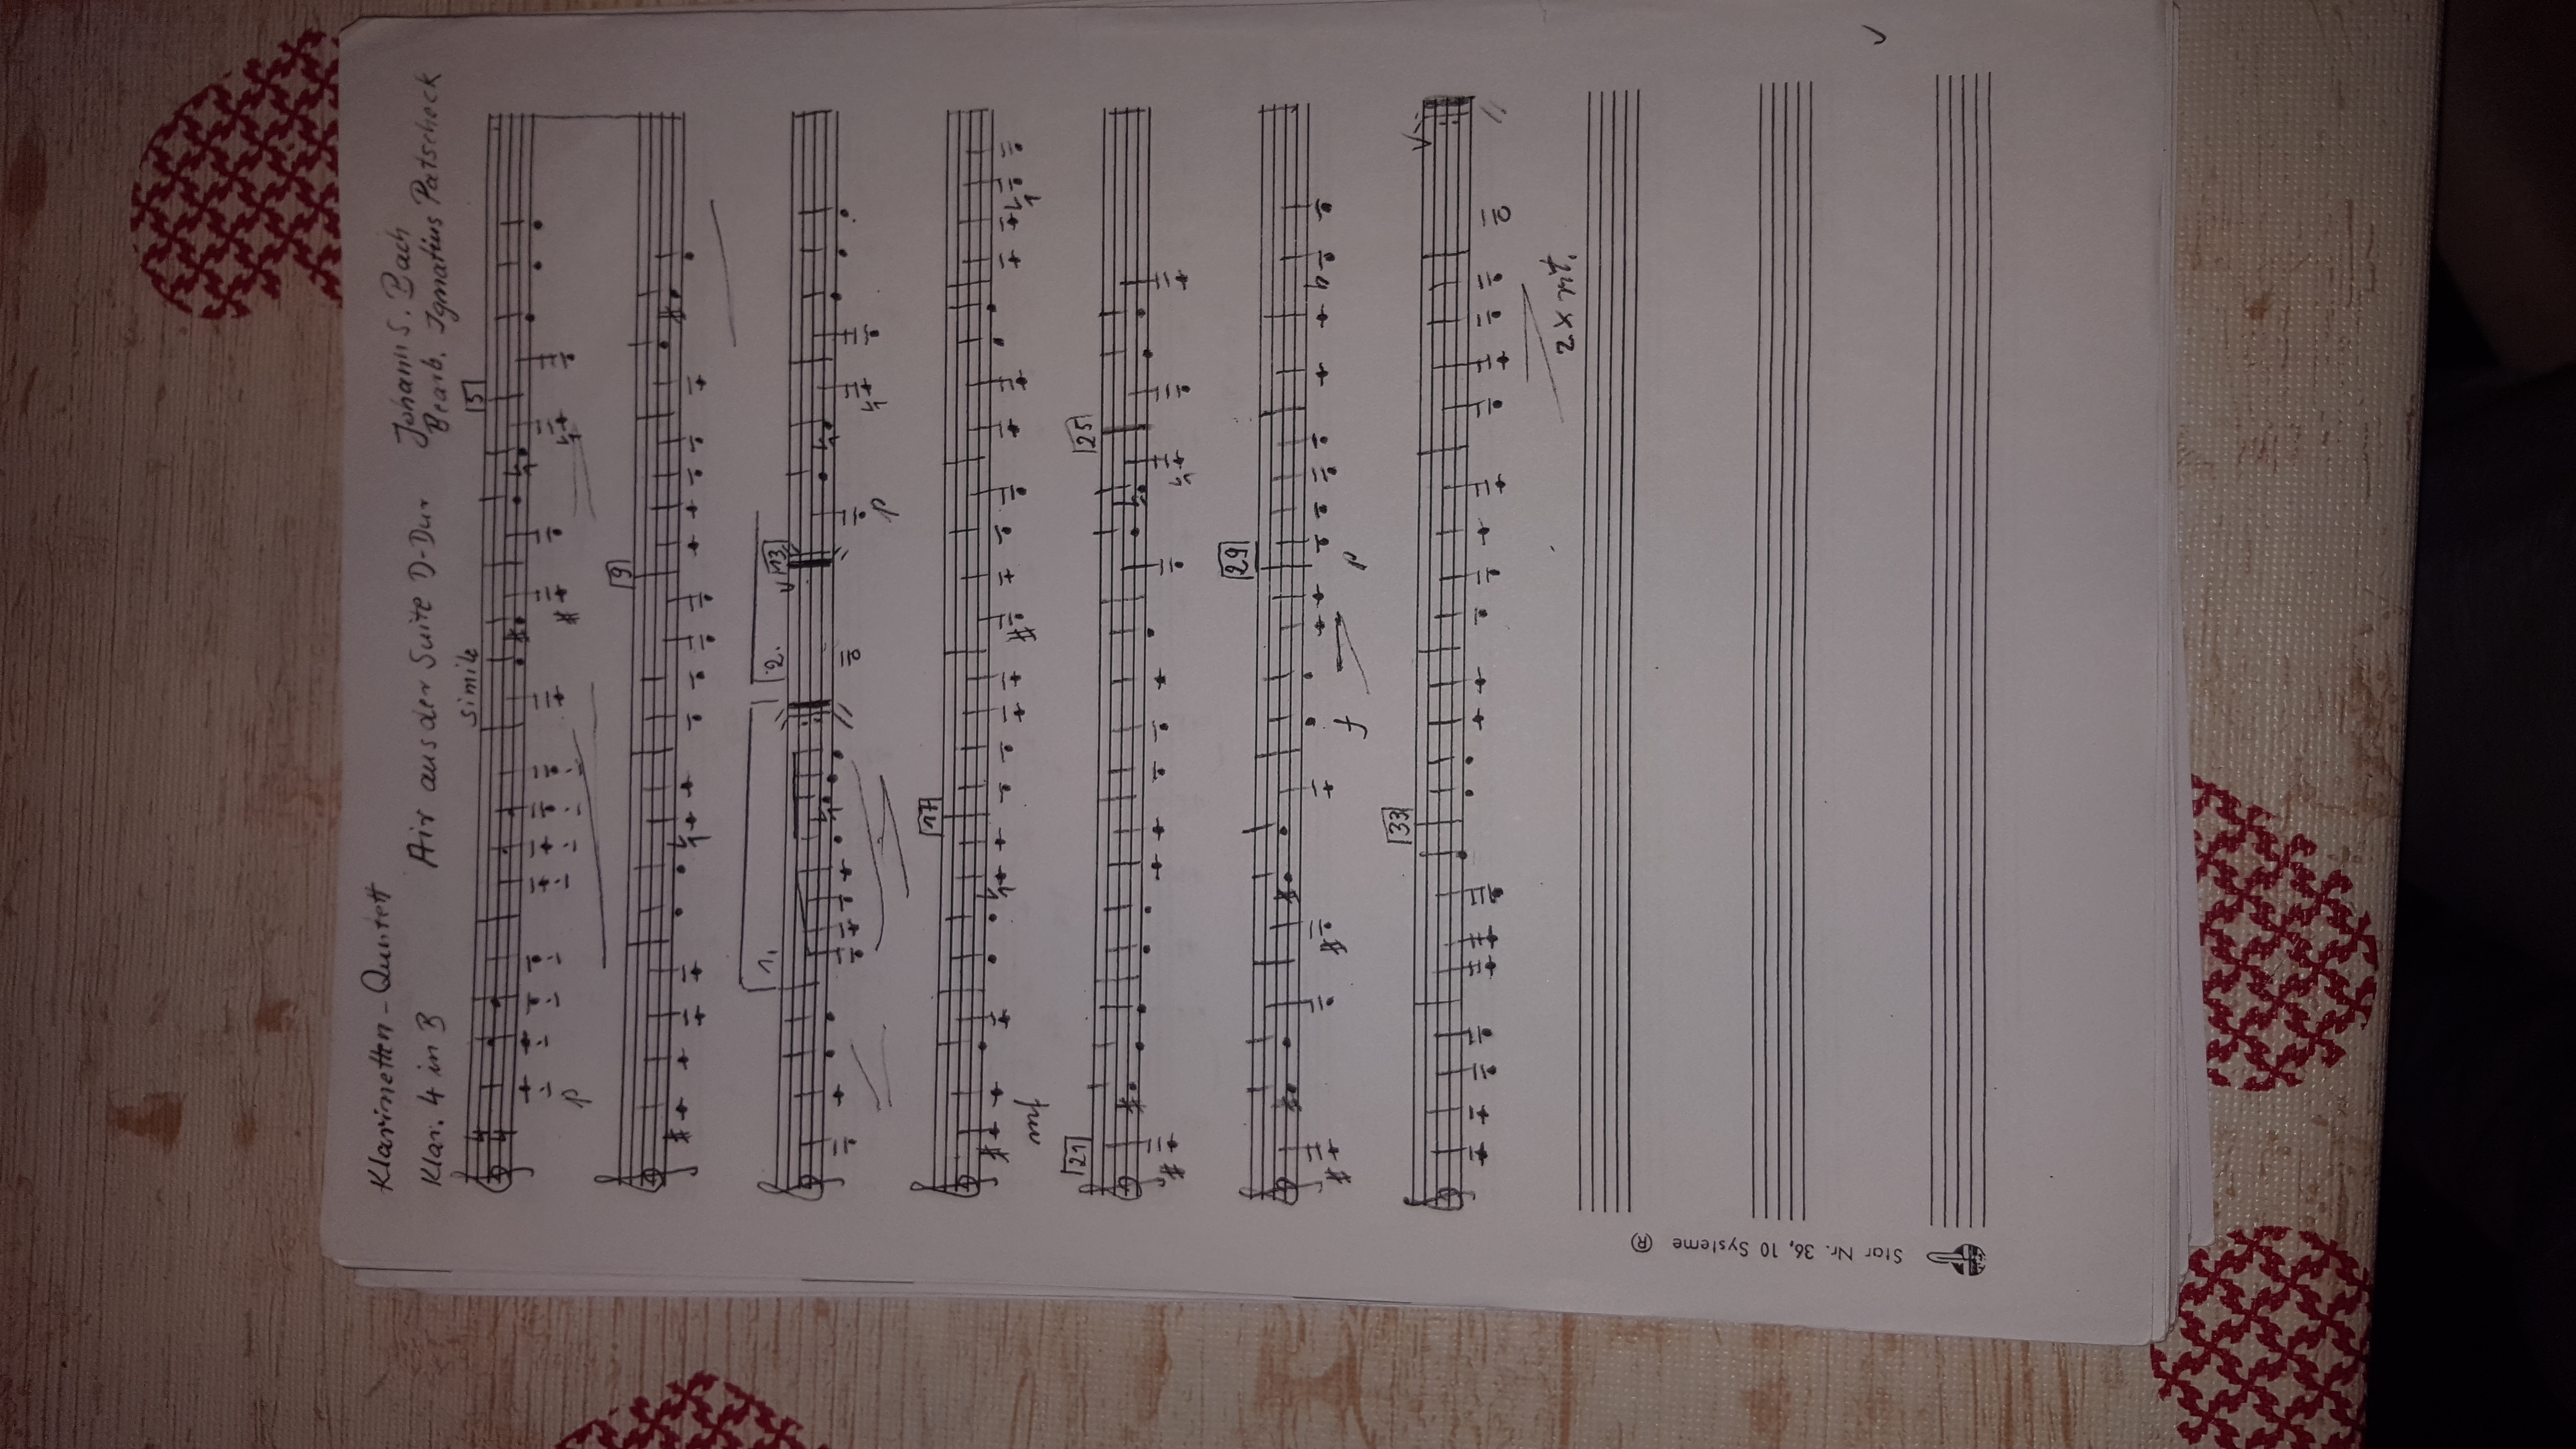 Klarinetten-Quntett
Klar. 4 in B
Air aus der Suite D-Dur
Johann S. Bach
Bearb. Ignatius Patscheck
simile
4
4
5
p
9
1.
2.
13
p
17
mf
21
25
29
f
p
33
2x rit.
Star Nr. 36, 10 Systeme ®